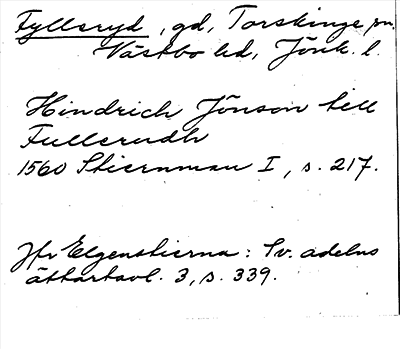 Fyllsryd, gd, Torskinge sn.
Västbo hd, Jönk. l.
Hindrich Jönson till
Fullsrudh
1560 Stiernman I, s. 217.
Jfr Elgenstierna: Sv. adelns
ättartavl. 3, s. 339.